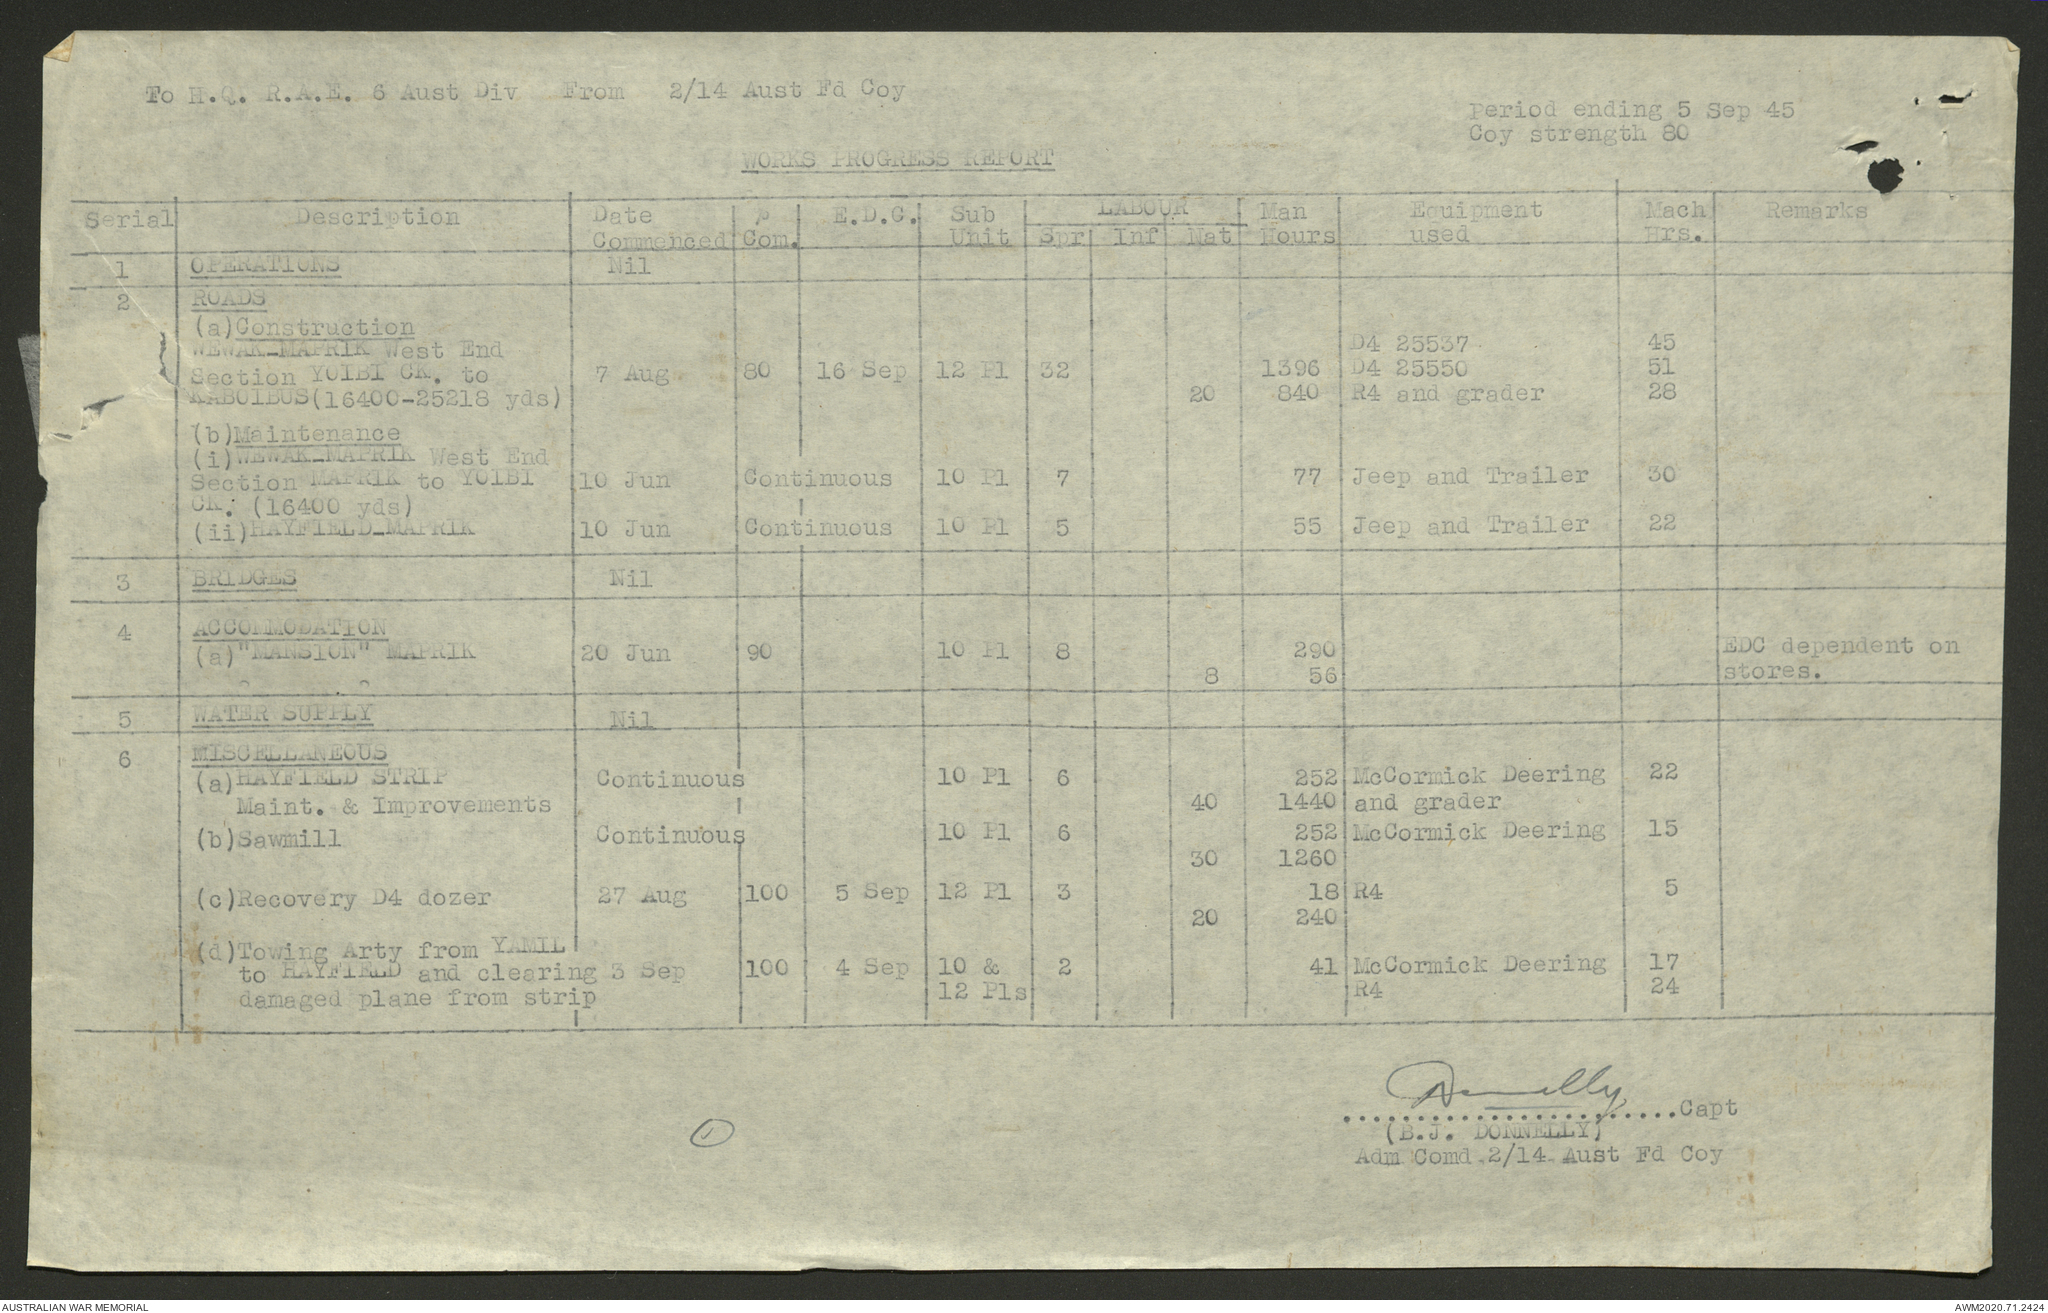 To H.Q. R.A.E. 6 Aust Div From 2/14 Aust Fd Coy
Period ending 5 Sep 45
Coy strength 80
WORKS PROGRESS REPORT
Serial Description Date Commenced % Com. E.D.C. Sub Unit LABOUR Spr Inf Nat Man Hours Equipment used Mach Hrs. Remarks
1 OPERATIONS Nil
2 ROADS
(a)Construction
WEWAK-MAPRIK West End D4 25537 45
Section YOIBI CK. to 7 Aug 80 16 Sep 12 Pl 32 1396 D4 25550 51
KABOIBUS(16400-25218 yds) 20 840 R4 and grader 28
(b)Maintenance
(i)WEWAK-MAPRIK West End
Section MAPRIK to YOIBI 10 Jun Continuous 10 Pl 7 77 Jeep and Trailer 30
CK. (16400 yds)
(ii)HAYFIELD-MAPRIK 10 Jun Continuous 10 Pl 5 55 Jeep and Trailer 22
3 BRIDGES Nil
4 ACCOMMODATION
(a)"MANSION" MAPRIK 20 Jun 90 10 Pl 8 290 EDC dependent on
" " 8 56 stores.
5 WATER SUPPLY Nil
6 MISCELLANEOUS
(a)HAYFIELD STRIP Continuous 10 Pl 6 252 McCormick Deering 22
Maint. & Improvements 40 1440 and grader
(b)Sawmill Continuous 10 Pl 6 252 McCormick Deering 15
30 1260
(c)Recovery D4 dozer 27 Aug 100 5 Sep 12 Pl 3 18 R4 5
20 240
(d)Towing Arty from YAMIL
to HAYFIELD and clearing 3 Sep 100 4 Sep 10 & 2 41 McCormick Deering 17
damaged plane from strip 12 Pls R4 24
Donnelly
.......................Capt
(B.J. DONNELLY)
Adm Comd 2/14 Aust Fd Coy
1
AUSTRALIAN WAR MEMORIAL
AWM2020.71.2424